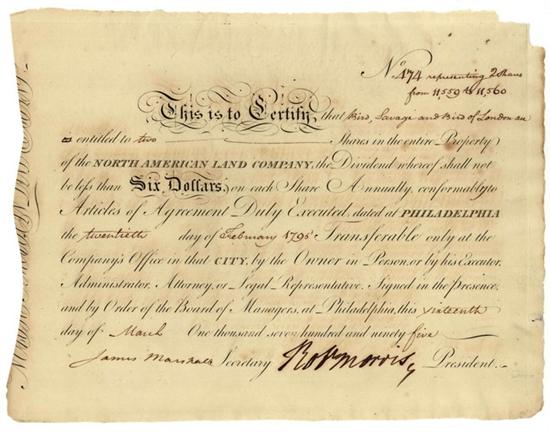 No. 474 representing 2 Shares
from 11,559 to 11,560
This is to Certify, that Bird, Savage and Bird of London are
entitled to two Shares in the entire Property
of the NORTH AMERICAN LAND COMPANY, the Dividend whereof shall not
be less than Six Dollars, on each Share Annually, conformably to
Articles of Agreement Duly Executed, dated at PHILADELPHIA
the twentieth day of February 1795 Transferable only at the
Company's Office in that CITY, by the Owner in Person, or by his Executor,
Administrator, Attorney, or Legal Representative. Signed in the presence,
and by Order of the Board of Managers, at Philadelphia, this sixteenth
day of March One thousand seven hundred and ninety five
James Marshall Secretary Rob Morris President.